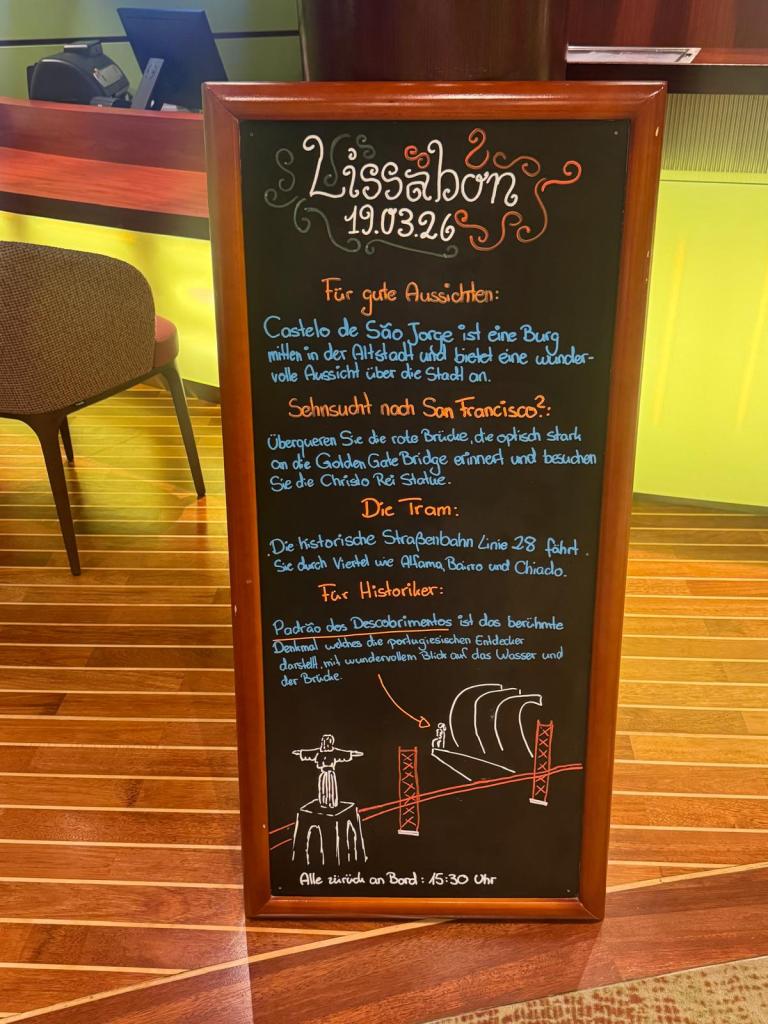 Lissabon
19.03.26
Für gute Aussichten:
Castelo de São Jorge ist eine Burg
mitten in der Altstadt und bietet eine wunder-
volle Aussicht über die Stadt an.
Sehnsucht nach San Francisco?:
Überqueren Sie die rote Brücke, die optisch stark
an die Golden Gate Bridge erinnert und besuchen
Sie die Christo Rei Statue.
Die Tram:
Die historische Straßenbahn Linie 28 fährt
Sie durch Viertel wie Alfama, Bairro und Chiado.
Für Historiker:
Padrão dos Descobrimentos ist das berühmte
Denkmal welches die portugiesischen Entdecker
darstellt, mit wundervollem Blick auf das Wasser und
der Brücke.
Alle zurück an Bord: 15:30 Uhr